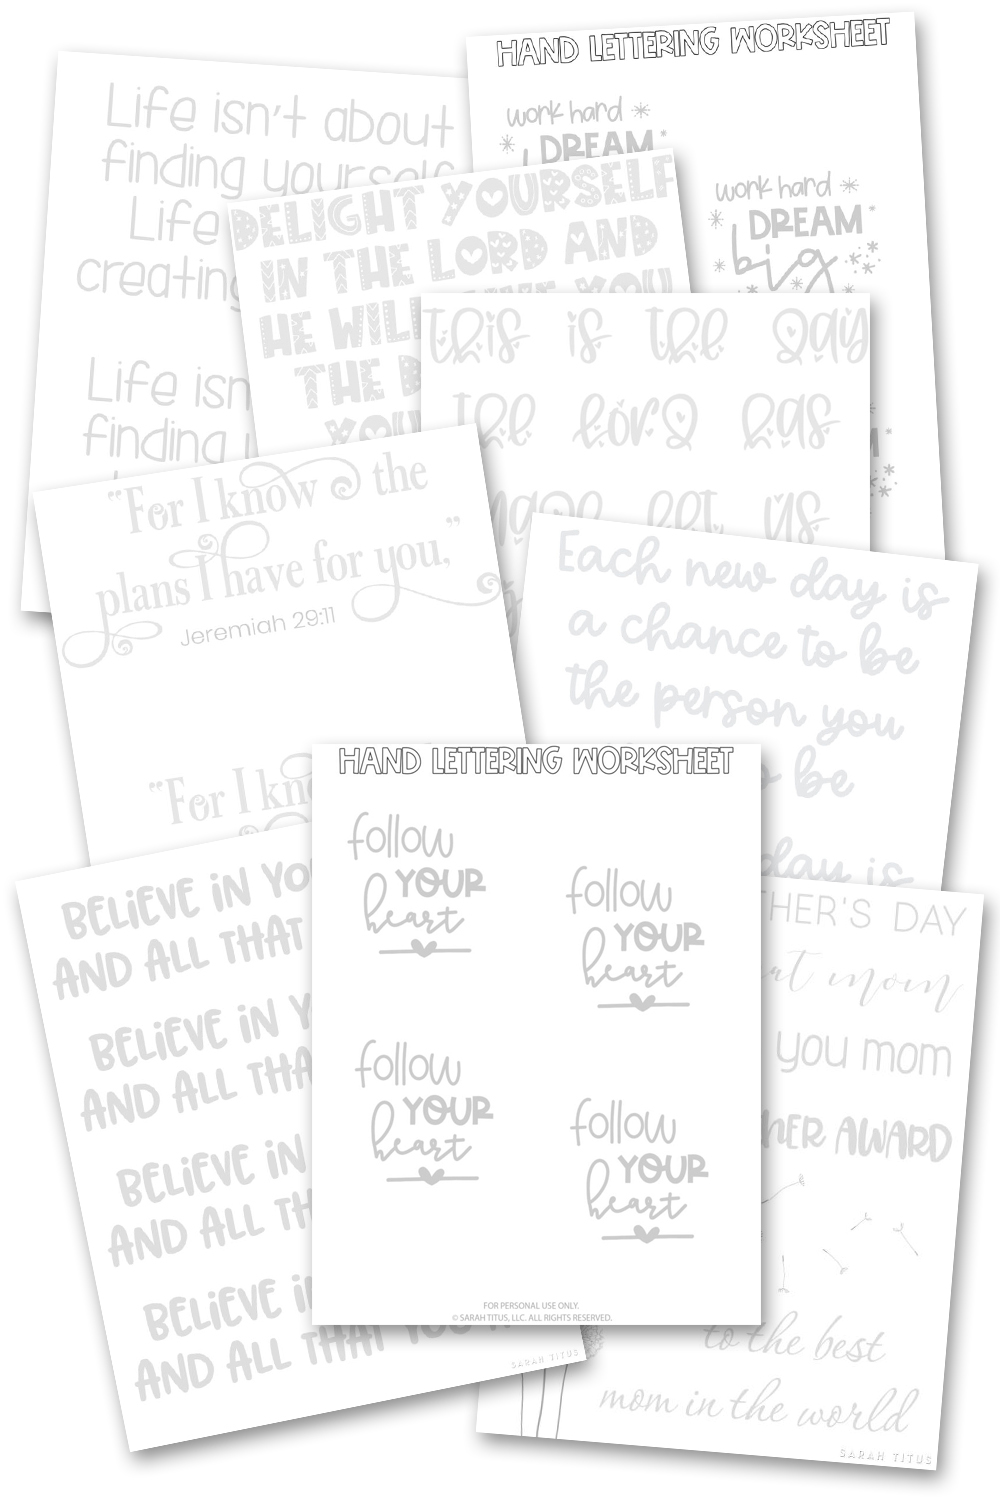 Life isn't about
finding yourself
Life
creating
Life isn
finding
HAND LETTERING WORKSHEET
work hard
DREAM
work hard
DREAM
big
DELIGHT YOURSELF
IN THE LORD AND
HE WILL GIVE YOU
THE
YOU
this is the day
the lord has
made let us
"For I know the
plans I have for you,"
Jeremiah 29:11
"For I kno
Each new day is
a chance to be
the person you
to be
day is
BELIEVE IN YO
AND ALL THAT
BELIEVE IN Y
AND ALL THA
BELIEVE IN
AND ALL TH
BELIEVE I
AND ALL THAT YOU
SARAH TITUS
HAND LETTERING WORKSHEET
follow
YOUR
heart
follow
YOUR
heart
follow
YOUR
heart
follow
YOUR
heart
FOR PERSONAL USE ONLY.
© SARAH TITUS, LLC. ALL RIGHTS RESERVED.
THER'S DAY
at mom
you mom
HER AWARD
to the best
mom in the world
SARAH TITUS